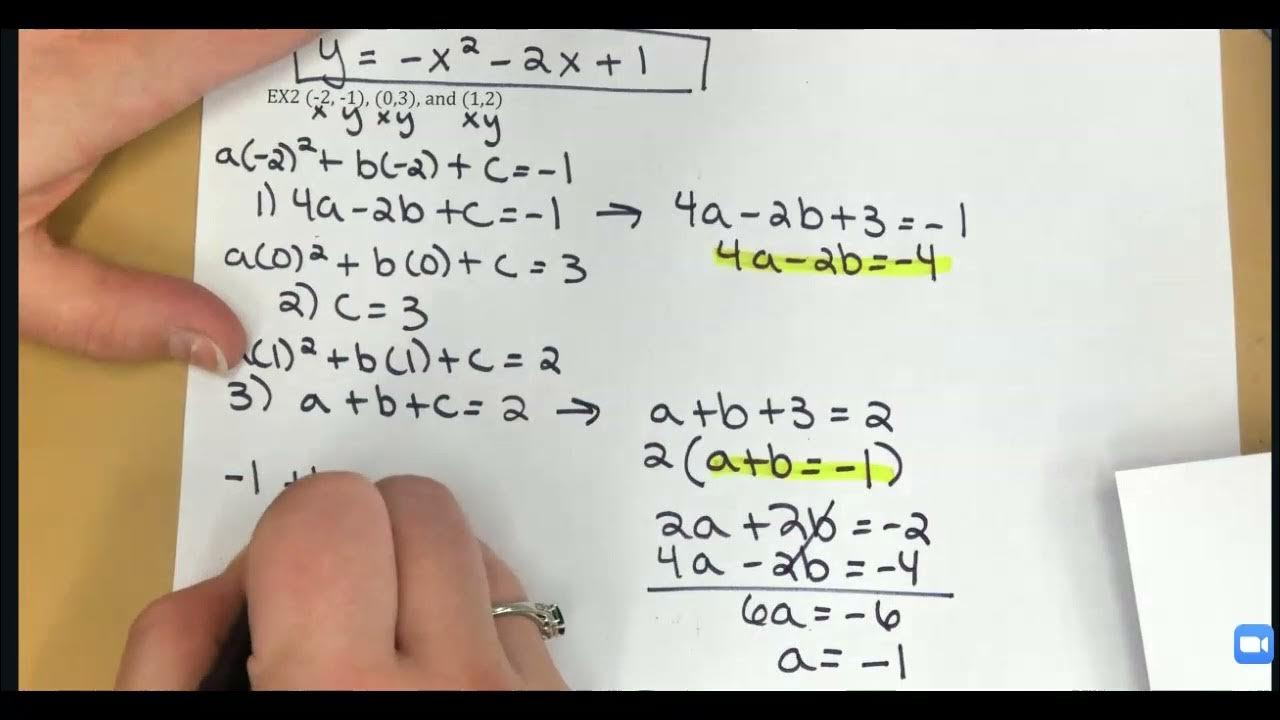 y = -x² - 2x + 1
EX2 (-2, -1), (0,3), and (1,2)
x y x y x y
a(-2)² + b(-2) + c = -1
1) 4a - 2b + c = -1 → 4a - 2b + 3 = -1
4a - 2b = -4
a(0)² + b(0) + c = 3
2) c = 3
(1)² + b(1) + c = 2
3) a + b + c = 2 → a + b + 3 = 2
2(a + b = -1)
-1 +
2a + 2b = -2
4a - 2b = -4
6a = -6
a = -1